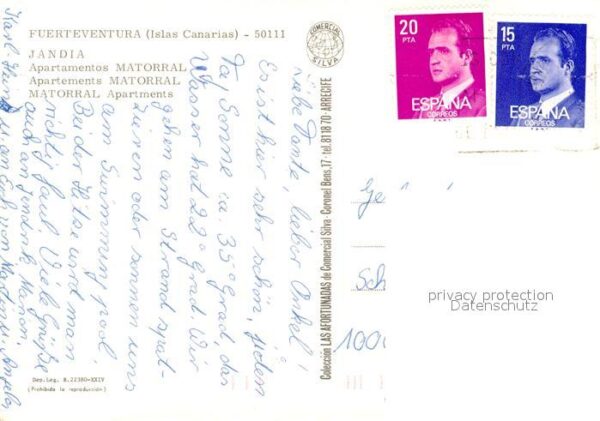 FUERTEVENTURA (Islas Canarias) - 50111
JANDIA
Apartamentos MATORRAL
Apartements MATORRAL
MATORRAL Apartments
COMERCIAL SILVA
20
PTA
ESPAÑA
CORREOS
15
PTA
ESPAÑA
CORREOS
Liebe Tante, lieber Onkel!
Es ist hier sehr schön, jeden
Tag Sonne ca. 35° Grad, das
Wasser hat 22° Grad. Wir
gehen am Strand spat-
zieren oder sonnen uns
am Swimming pool.
Bei der Hitze wird man
richtig faul. Viele Grüße
auch an Hendrik, Manon,
Karl-Heinz von Martina, Angela,
Colección LAS AFORTUNADAS de Comercial Silva - Coronel Bens, 17 - tel. 81 18 70 - ARRECIFE
Ge
Sch
1000
privacy protection
Datenschutz
Dep. Leg. B. 22380-XXIV
(Prohibida la reproducción)